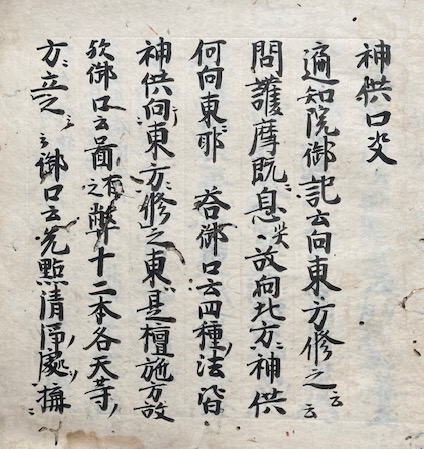 神供口决
遍知院御記云向東方修之云云
問護摩既息災故向北方神供
何向東耶 答御口云四種法皆
神供向東方修之東是檀施方故
欤御口云啚之有幣十二本各天等
方立之云云御口云先點清淨處搆